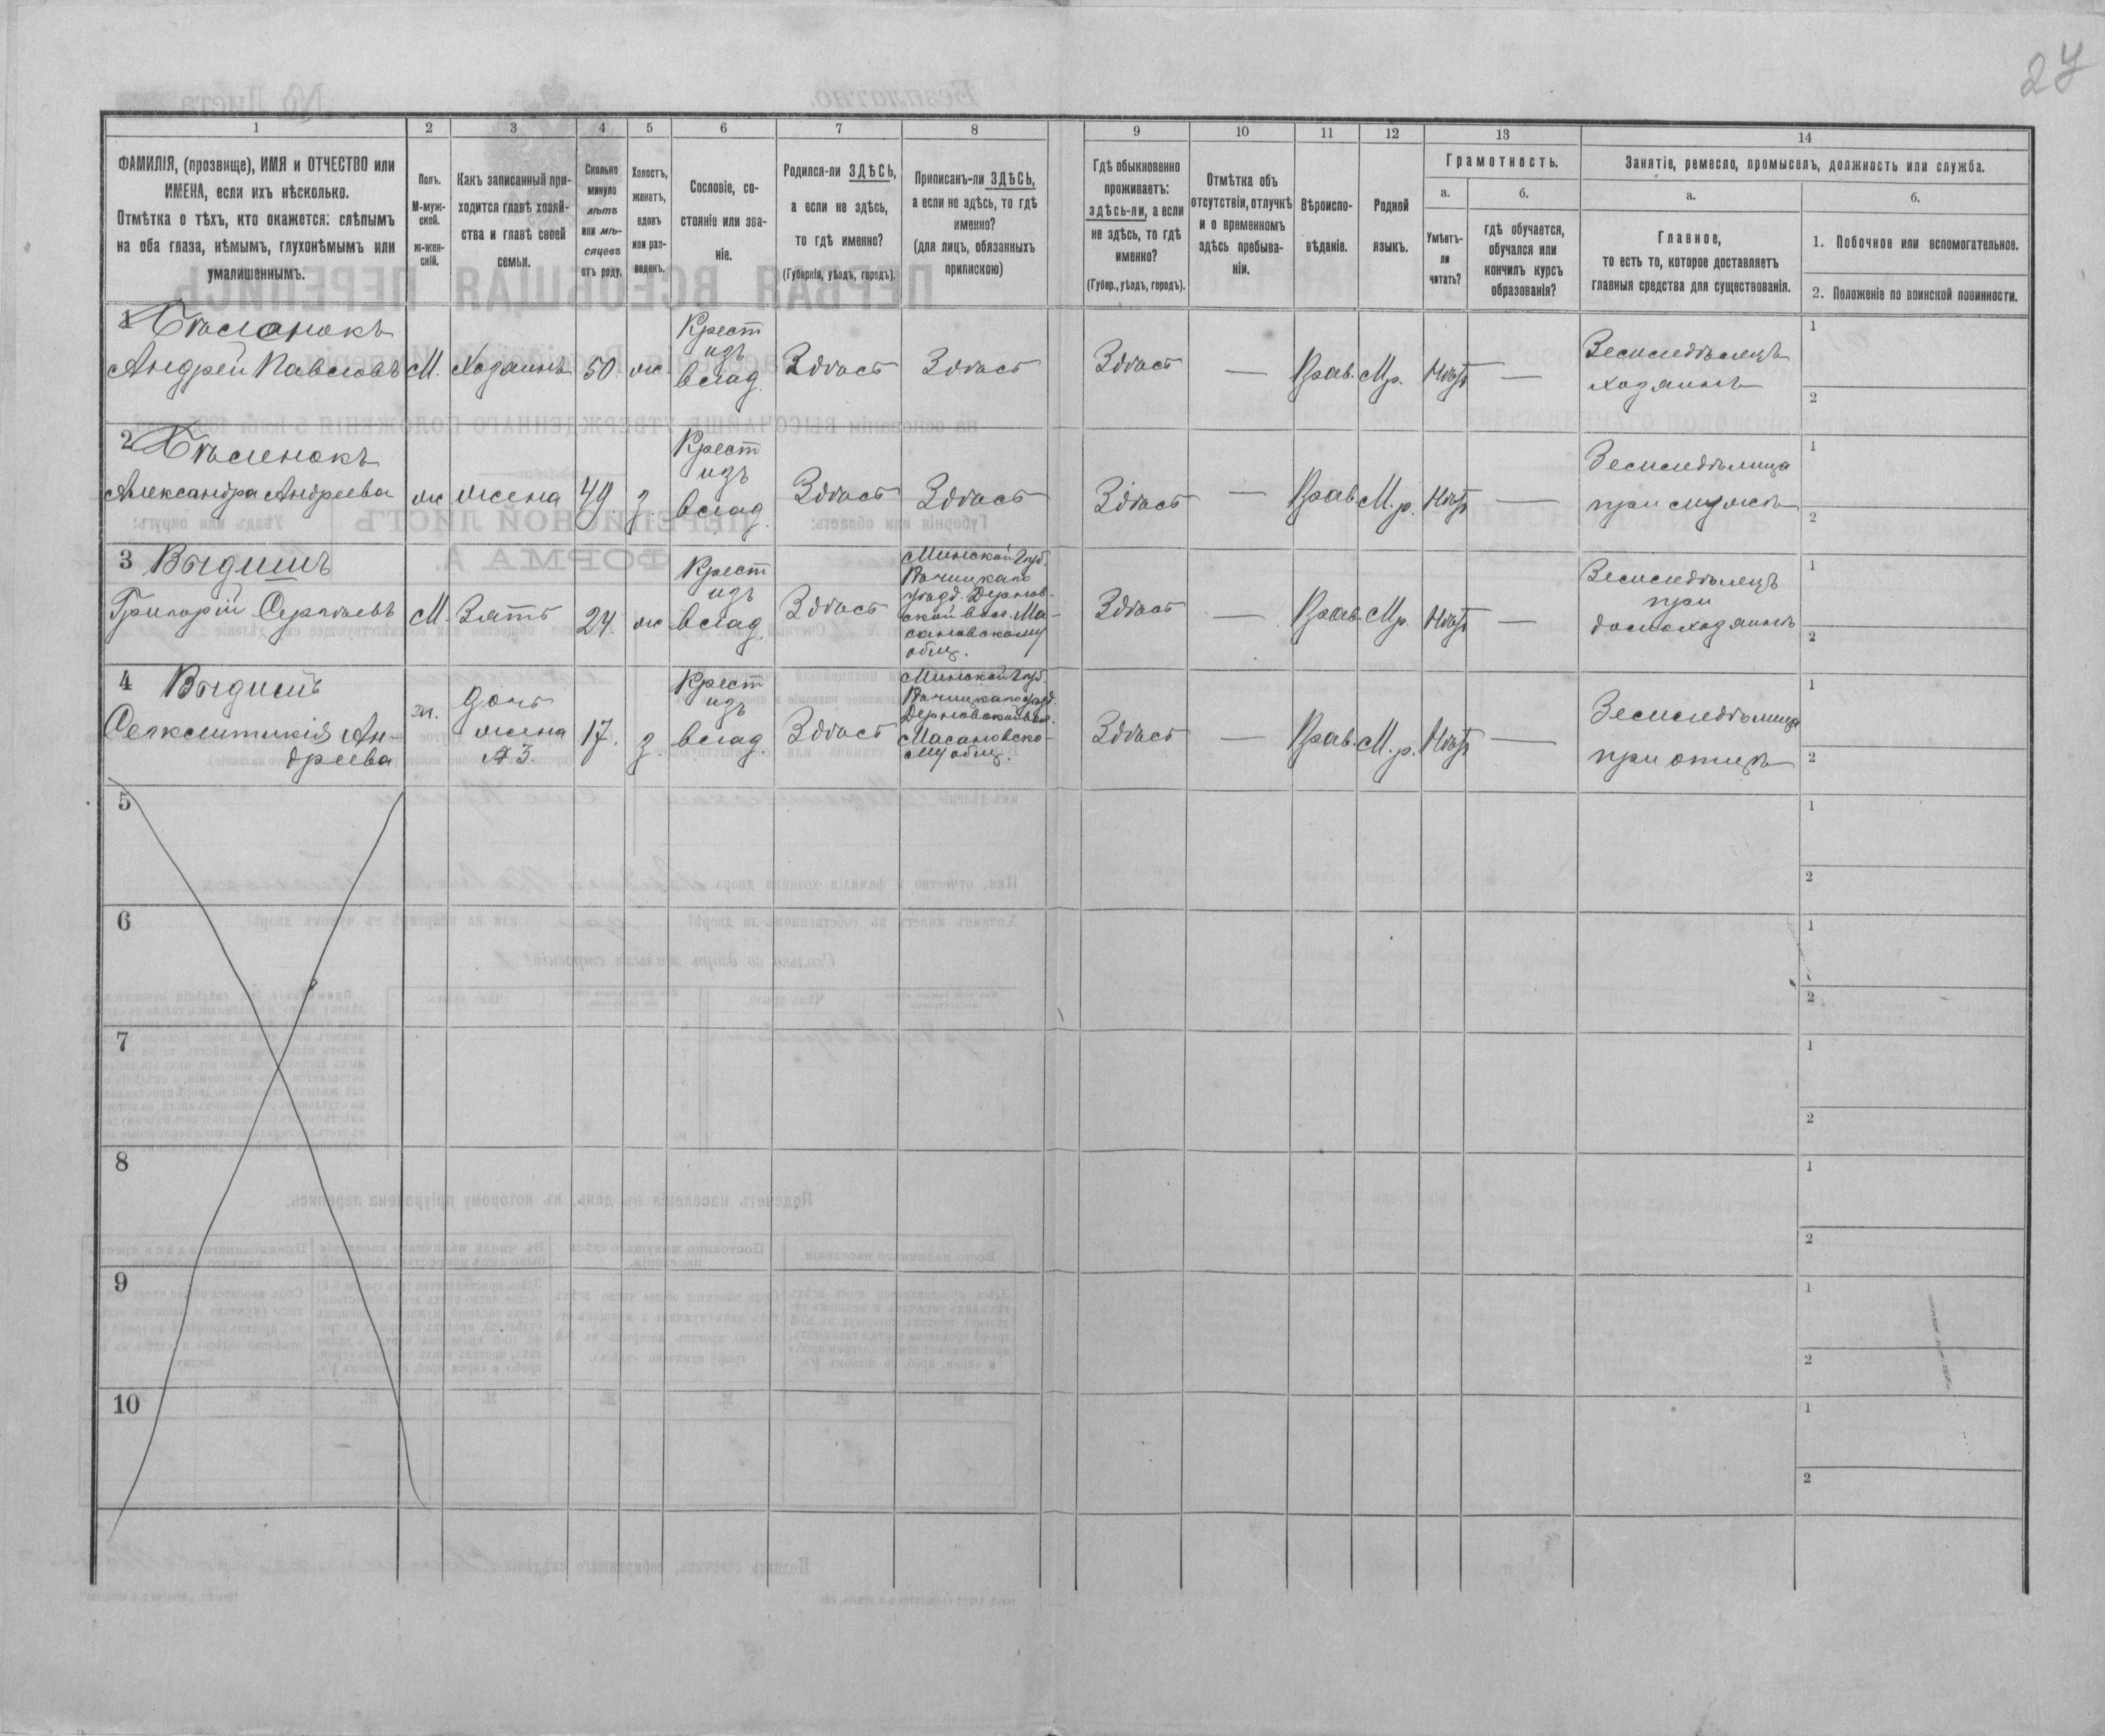 27
1 2 3 4 5 6 7 8 9 10 11 12 13 14
ФАМИЛІЯ, (прозвище), ИМЯ и ОТЧЕСТВО или
ИМЕНА, если ихъ нѣсколько.
Отмѣтка о тѣхъ, кто окажется: слѣпымъ
на оба глаза, нѣмымъ, глухонѣмымъ или
умалишеннымъ.
Полъ.
М-муж-
ской.
ж-жен-
скій.
Какъ записанный при-
ходится главѣ хозяй-
ства и главѣ своей
семьи.
Сколько
минуло
лѣтъ
или мѣ-
сяцевъ
отъ роду.
Холостъ,
женатъ,
вдовъ
или раз-
веденъ.
Сословіе, со-
стояніе или зва-
ніе.
Родился-ли ЗДѢСЬ,
а если не здѣсь,
то гдѣ именно?
(Губернія, уѣздъ, городъ).
Приписанъ-ли ЗДѢСЬ,
а если не здѣсь, то гдѣ
именно?
(для лицъ, обязанныхъ
припискою)
Гдѣ обыкновенно
проживаетъ:
здѣсь-ли, а если
не здѣсь, то гдѣ
именно?
(Губер., уѣздъ, городъ).
Отмѣтка объ
отсутствіи, отлучкѣ
и о временномъ
здѣсь пребыва-
ніи.
Вѣроиспо-
вѣданіе.
Родной
языкъ.
Грамотность.
а.
Умѣетъ-
ли
читать?
б.
гдѣ обучается,
обучался или
кончилъ курсъ
образованія?
Занятіе, ремесло, промыселъ, должность или служба.
а.
Главное,
то есть то, которое доставляетъ
главныя средства для существованія.
б.
1. Побочное или вспомогательное.
2. Положеніе по воинской повинности.
1
Андрей Павловъ
М.
Хозяинъ
50.
ж.
Крест
изъ
влад.
Здѣсь
Здѣсь
Здѣсь
—
Прав.
М.р.
Нѣтъ
—
Земледѣлецъ
хозяинъ
1
2
2
Александра Андреева
ж
жена
49.
з.
Крест
изъ
влад.
Здѣсь
Здѣсь
Здѣсь
—
Прав.
М.р.
Нѣтъ
—
Земледѣлица
при мужѣ
1
2
3
Григорій Сергѣевъ
М.
Зять
24.
ж
Крест
изъ
влад.
Здѣсь
Минской Губ.
Рѣчицкаго
уѣзд. Дернов-
ской вол. Ма-
сановскому
общ.
Здѣсь
—
Прав.
М.р.
Нѣтъ
—
Земледѣлецъ
при
домохозяинѣ
1
2
4
Ан-
дреева
ж.
дочь
жена
№ 3.
17.
з.
Крест
изъ
влад.
Здѣсь
Минской Губ.
Рѣчицкаго уѣзд.
Дерновской вол.
Масановско-
му общ.
Здѣсь
—
Прав.
М.р.
Нѣтъ
—
Земледѣлица
при отцѣ
1
2
5
1
2
6
1
2
7
1
2
8
1
2
9
1
2
10
1
2